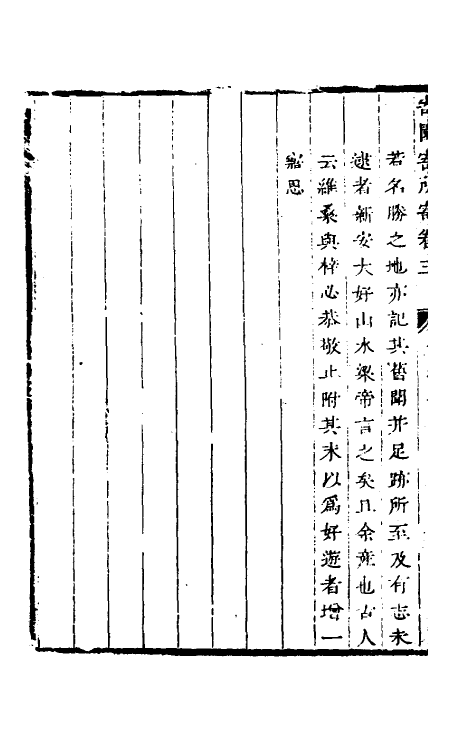 寄園寄所寄卷三
若名勝之地亦記其舊聞并足跡所至及有志未
逮者新安大好山水梁帝言之矣且余産也古人
云維桑與梓必恭敬止附其末以爲好遊者增一